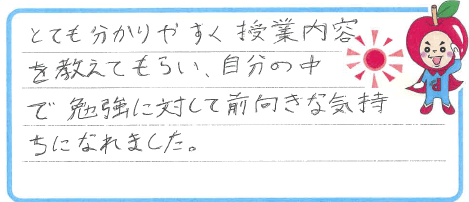 とても分かりやすく授業内容
を教えてもらい、自分の中
で勉強に対して前向きな気持
ちになれました。